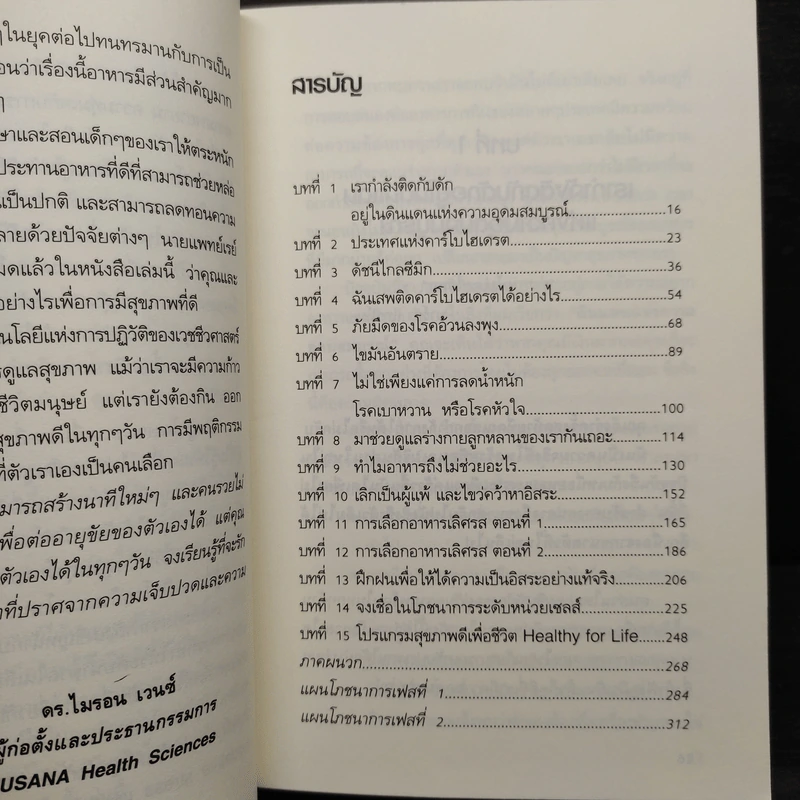 ๆในยุคต่อไปทนทรมานกับการเป็น
อนว่าเรื่องนี้อาหารมีส่วนสำคัญมาก
ๆ
ษาและสอนเด็กๆของเราให้ตระหนัก
ประทานอาหารที่ดีที่สามารถช่วยหล่อ
เป็นปกติ และสามารถลดทอนความ
ลายด้วยปัจจัยต่างๆ นายแพทย์เรย์
มดแล้วในหนังสือเล่มนี้ ว่าคุณและ
อย่างไรเพื่อการมีสุขภาพที่ดี
นโลยีแห่งการปฏิวัติของเวชชีวศาสตร์
รดูแลสุขภาพ แม้ว่าเราจะมีความก้าว
ชีวิตมนุษย์ แต่เรายังต้องกิน ออก
สุขภาพดีในทุกๆวัน การมีพฤติกรรม
ที่ตัวเราเองเป็นคนเลือก
มารถสร้างนาทีใหม่ๆ และคนรวยไม่
พื่อต่ออายุขัยของตัวเองได้ แต่คุณ
ตัวเองได้ในทุกๆวัน จงเรียนรู้ที่จะรัก
าที่ปราศจากความเจ็บปวดและความ
ดร.ไมรอน เวนซ์
ผู้ก่อตั้งและประธานกรรมการ
USANA Health Sciences
สารบัญ
บทที่ 1 เรากำลังติดกับดัก
อยู่ในดินแดนแห่งความอุดมสมบูรณ์.................16
บทที่ 2 ประเทศแห่งคาร์โบไฮเดรต..........................23
บทที่ 3 ดัชนีไกลซีมิก.......................................36
บทที่ 4 ฉันเสพติดคาร์โบไฮเดรตได้อย่างไร..................54
บทที่ 5 ภัยมืดของโรคอ้วนลงพุง............................68
บทที่ 6 ไขมันอันตราย.......................................89
บทที่ 7 ไม่ใช่เพียงแค่การลดน้ำหนัก
โรคเบาหวาน หรือโรคหัวใจ........................100
บทที่ 8 มาช่วยดูแลร่างกายลูกหลานของเรากันเถอะ..........114
บทที่ 9 ทำไมอาหารถึงไม่ช่วยอะไร..........................130
บทที่ 10 เลิกเป็นผู้แพ้ และไขว่คว้าหาอิสระ...................152
บทที่ 11 การเลือกอาหารเลิศรส ตอนที่ 1.....................165
บทที่ 12 การเลือกอาหารเลิศรส ตอนที่ 2.....................186
บทที่ 13 ฝึกฝนเพื่อให้ได้ความเป็นอิสระอย่างแท้จริง.........206
บทที่ 14 จงเชื่อในโภชนาการระดับหน่วยเซลส์...............225
บทที่ 15 โปรแกรมสุขภาพดีเพื่อชีวิต Healthy for Life.....248
ภาคผนวก....................................................268
แผนโภชนาการเฟสที่ 1.......................................284
แผนโภชนาการเฟสที่ 2.......................................312